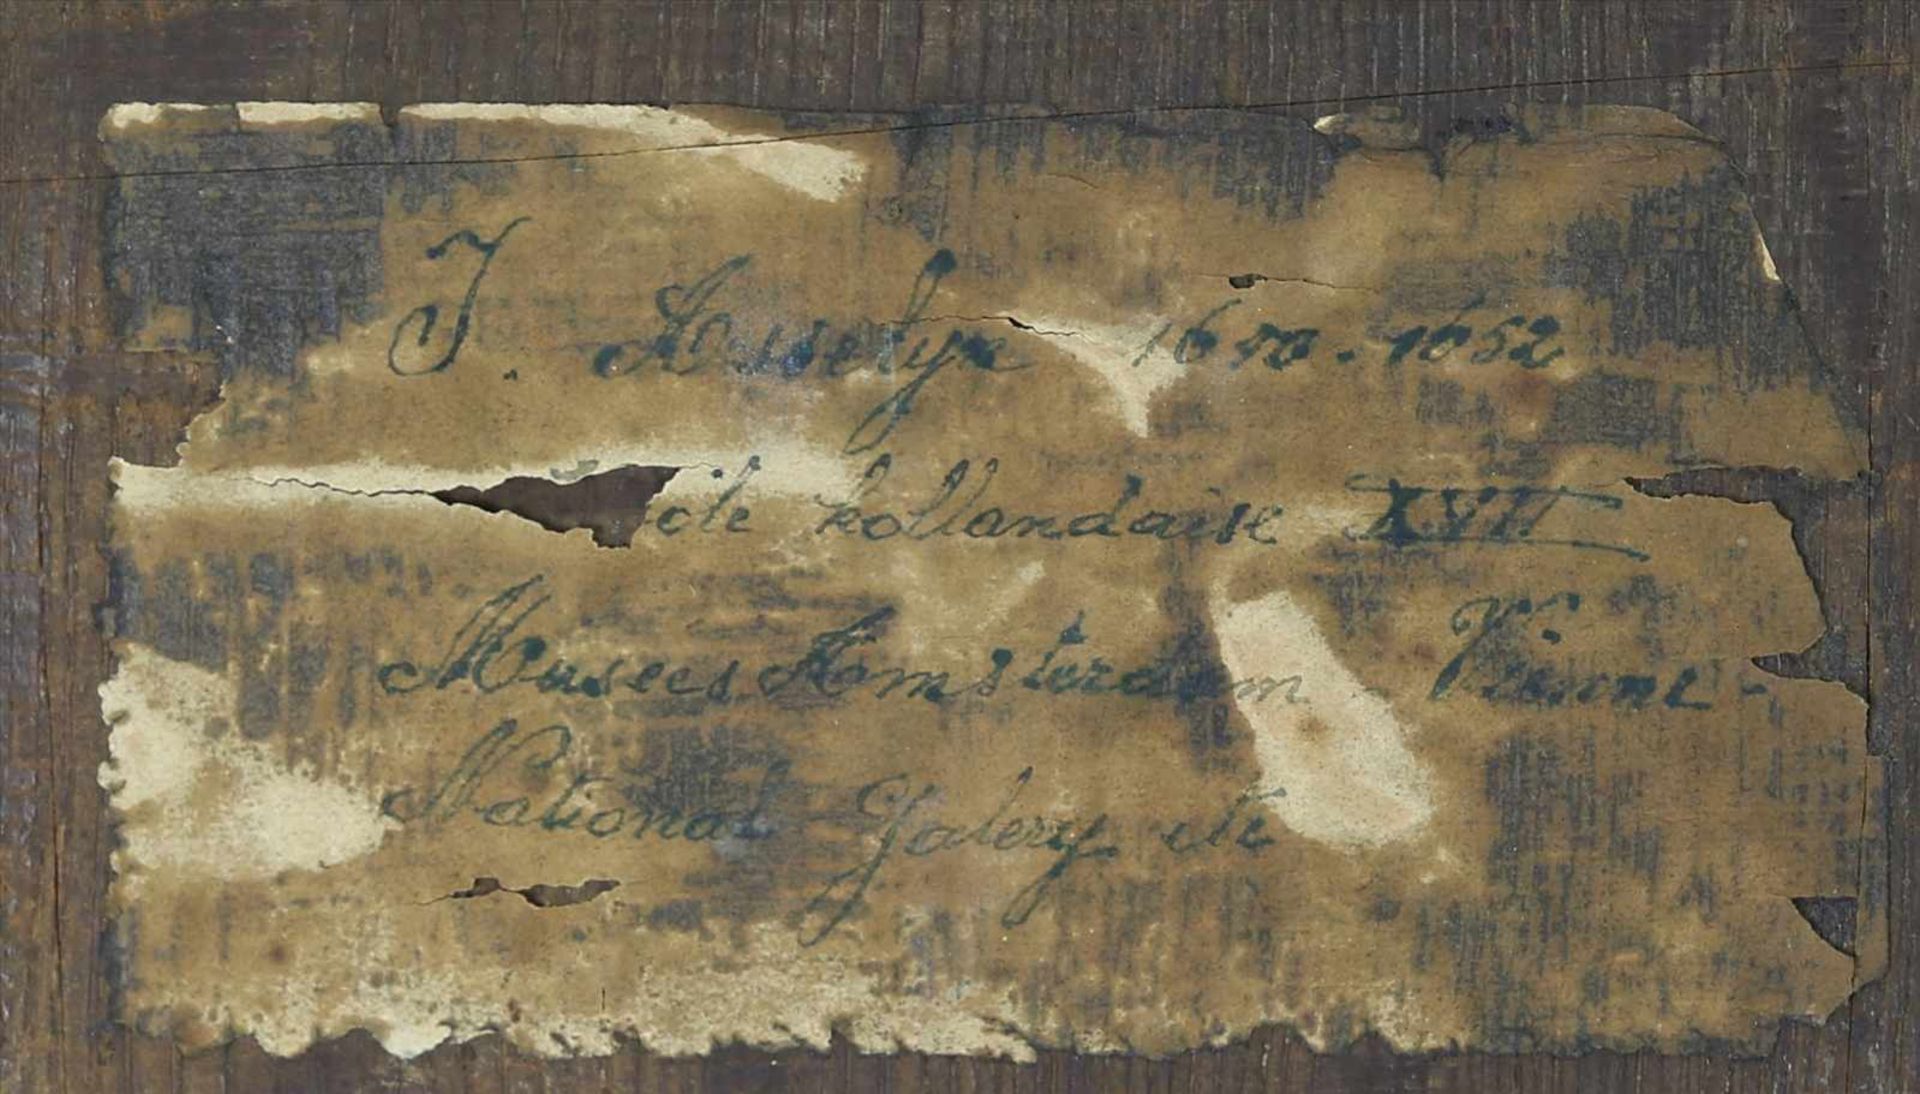 J. Asselyn 1610.1652
ole hollandaise XVII
Musees Amsterdam - Vienne -
National Galery etc